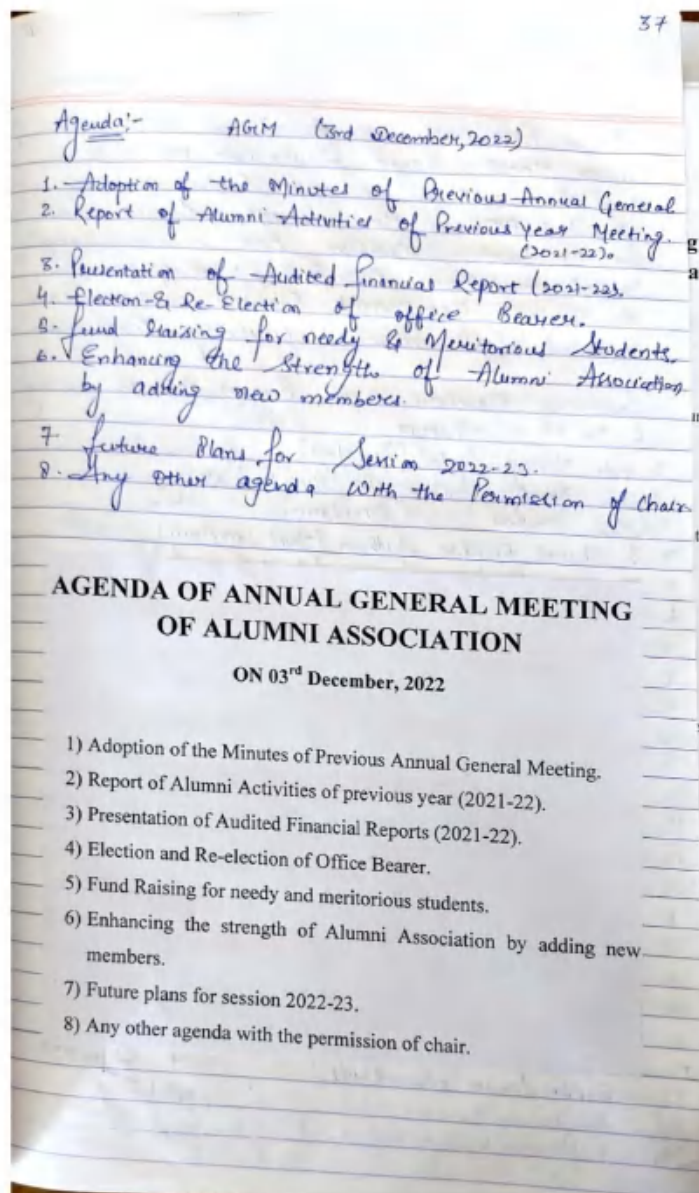 37
Agenda:- AGM (3rd December, 2022)
1. Adoption of the Minutes of Previous Annual General
2. Report of Alumni Activities of Previous year Meeting.
(2021-22).
3. Presentation of Audited Financial Report (2021-22).
4. Election & Re-Election of office Bearer.
5. Fund Raising for needy & Meritorious Students.
6. Enhancing the Strength of Alumni Association
by adding new members.
7. Future Plans for Session 2022-23.
8. Any other agenda with the Permission of Chair
AGENDA OF ANNUAL GENERAL MEETING
OF ALUMNI ASSOCIATION
ON 03rd December, 2022
1) Adoption of the Minutes of Previous Annual General Meeting.
2) Report of Alumni Activities of previous year (2021-22).
3) Presentation of Audited Financial Reports (2021-22).
4) Election and Re-election of Office Bearer.
5) Fund Raising for needy and meritorious students.
6) Enhancing the strength of Alumni Association by adding new
members.
7) Future plans for session 2022-23.
8) Any other agenda with the permission of chair.